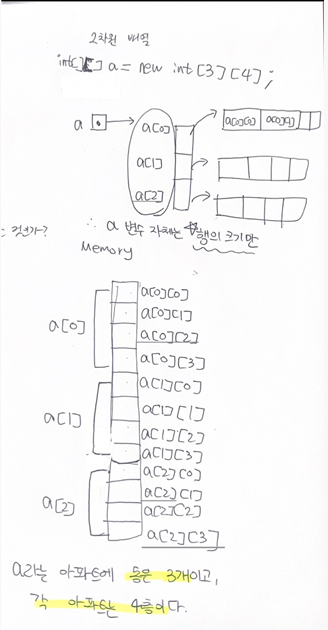 2차원 배열
int[][] a = new int[3][4];
a
a[0]
a[0][0] a[0][1]
a[1]
a[2]
∴ a 변수 자체는 행의 크기만
Memory
a[0]
a[0][0]
a[0][1]
a[0][2]
a[0][3]
a[1]
a[1][0]
a[1][1]
a[1][2]
a[1][3]
a[2]
a[2][0]
a[2][1]
a[2][2]
a[2][3]
a라는 아파트에 동은 3개이고,
각 아파트는 4층이다.